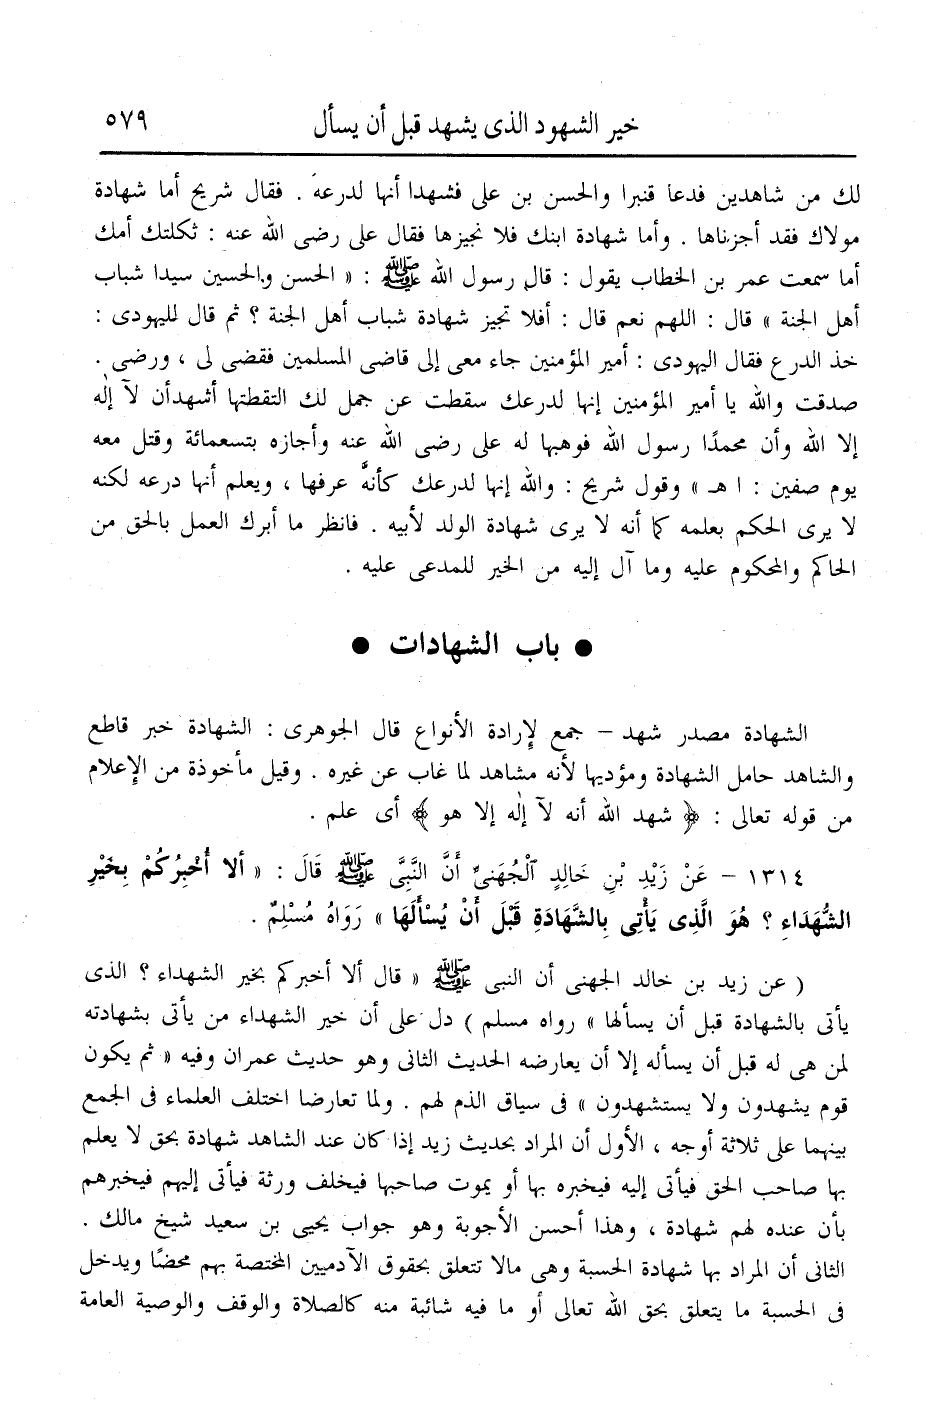 خير الشهود الذى يشهد قبل أن يسأل ٥٧٩
لك من شاهدين فدعا قنبرا والحسن بن على فشهدا أنها لدرعه . فقال شريح أما شهادة
مولاك فقد أجزناها . وأما شهادة ابنك فلا نجيزها فقال على رضى الله عنه : ثكلتك أمك
أما سمعت عمر بن الخطاب يقول : قال رسول الله ﷺ : « الحسن والحسين سيدا شباب
أهل الجنة » قال : اللهم نعم قال : أفلا تجيز شهادة شباب أهل الجنة ؟ ثم قال لليهودى :
خذ الدرع فقال اليهودى : أمير المؤمنين جاء معى إلى قاضى المسلمين فقضى لى ، ورضى .
صدقت والله يا أمير المؤمنين إنها لدرعك سقطت عن جمل لك التقطتها أشهدأن لآ إلٰه
إلا الله وأن محمدًا رسول الله فوهبها له على رضى الله عنه وأجازه بتسعمائة وقتل معه
يوم صفين : ا هـ » وقول شريح : والله إنها لدرعك كأنَّه عرفها ، ويعلم أنها درعه لكنه
لا يرى الحكم بعلمه كما أنه لا يرى شهادة الولد لأبيه . فانظر ما أبرك العمل بالحق من
الحاكم والمحكوم عليه وما آل إليه من الخير للمدعى عليه .
● باب الشهادات ●
الشهادة مصدر شهد – جمع لإرادة الأنواع قال الجوهرى : الشهادة خبر قاطع
والشاهد حامل الشهادة ومؤديها لأنه مشاهد لما غاب عن غيره . وقيل مأخوذة من الإعلام
من قوله تعالى : ﴿ شهد الله أنه لآ إلٰه إلا هو ﴾ أى علم .
١٣١٤ – عَنْ زَيْدِ بْنِ خَالِدٍ ٱلْجُهَنىِّ أَنَّ النَّبىَّ ﷺ قَالَ : « ألا أُخْبِرُكُمْ بِخَيْرِ
الشُّهَدَاءِ ؟ هُوَ الَّذِى يَأْتِى بِالشَّهَادَةِ قَبْلَ أَنْ يُسْأَلَهَا » رَوَاهُ مُسْلِمٌ .
( عن زيد بن خالد الجهنى أن النبى ﷺ « قال ألا أخبركم بخير الشهداء ؟ الذى
يأتى بالشهادة قبل أن يسألها » رواه مسلم ) دل على أن خير الشهداء من يأتى بشهادته
لمن هى له قبل أن يسأله إلا أن يعارضه الحديث الثانى وهو حديث عمران وفيه « ثم يكون
قوم يشهدون ولا يستشهدون » فى سياق الذم لهم . ولما تعارضا اختلف العلماء فى الجمع
بينهما على ثلاثة أوجه ، الأول أن المراد بحديث زيد إذا كان عند الشاهد شهادة بحق لا يعلم
بها صاحب الحق فيأتى إليه فيخبره بها أو يموت صاحبها فيخلف ورثة فيأتى إليهم فيخبرهم
بأن عنده لهم شهادة ، وهذا أحسن الأجوبة وهو جواب يحيى بن سعيد شيخ مالك .
الثانى أن المراد بها شهادة الحسبة وهى مالا تتعلق بحقوق الآدميين المختصة بهم محضًا ويدخل
فى الحسبة ما يتعلق بحق الله تعالى أو ما فيه شائبة منه كالصلاة والوقف والوصية العامة